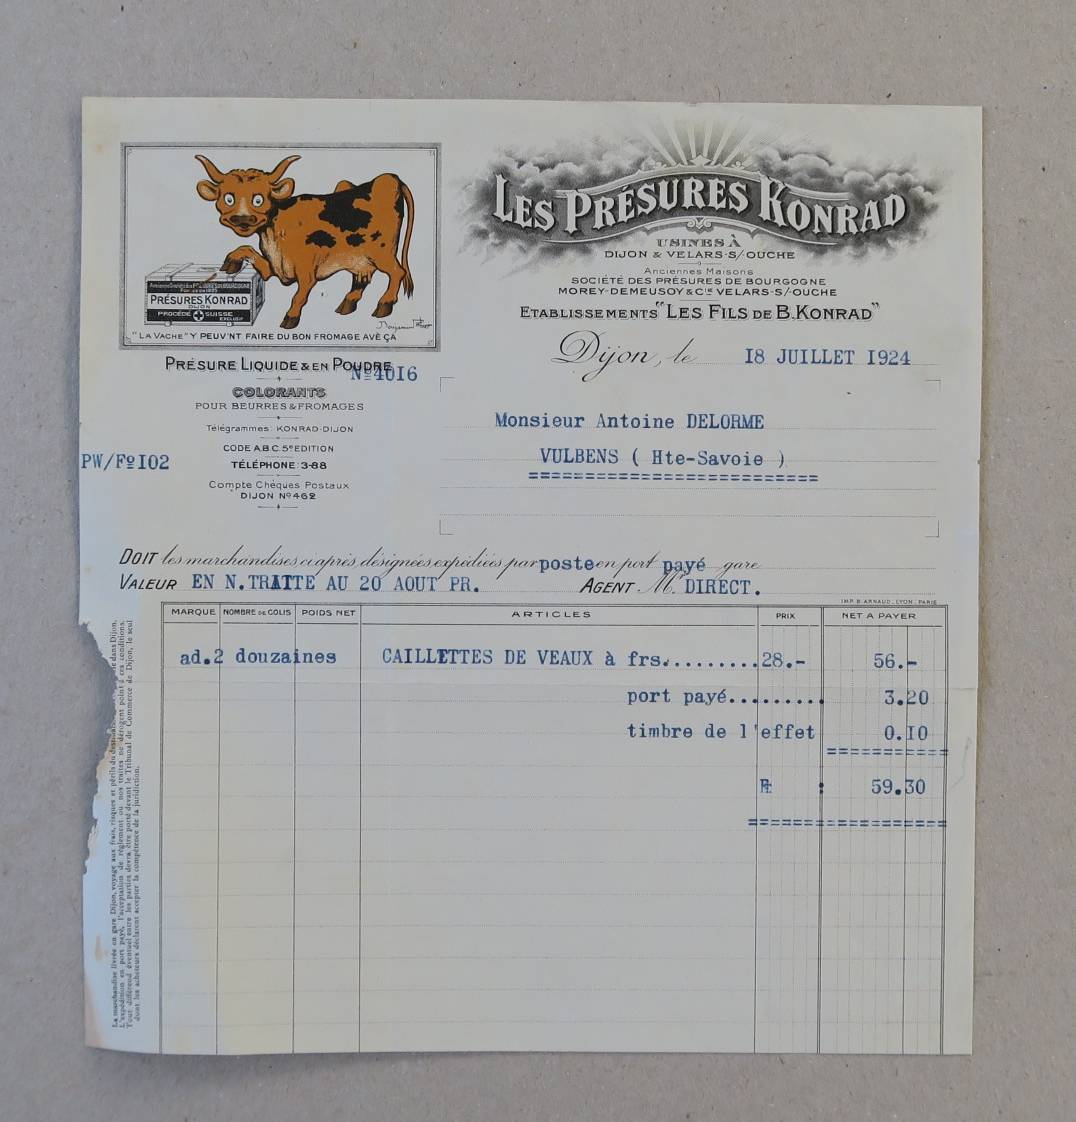 Anciennes Société des Présures de Bourgogne
PRÉSURES KONRAD
DIJON
PROCÉDÉ SUISSE
EXCLUSIF
"LA VACHE" Y PEUV'NT FAIRE DU BON FROMAGE AVÈ ÇA
Benjamin Rabier
LES PRÉSURES KONRAD
USINES À
DIJON & VELARS-S/OUCHE
Anciennes Maisons
SOCIÉTÉ DES PRÉSURES DE BOURGOGNE
MOREY-DEMEUSOY & Cie VELARS-S/OUCHE
ETABLISSEMENTS "LES FILS DE B. KONRAD"
Dijon, le 18 JUILLET 1924
PRÉSURE LIQUIDE & EN POUDRE
Nº 4016
COLORANTS
POUR BEURRES & FROMAGES
Télégrammes: KONRAD-DIJON
CODE A.B.C. 5e EDITION
PW/Fº 102
TÉLÉPHONE: 3-88
Compte Chèques Postaux
DIJON Nº 462
Monsieur Antoine DELORME
VULBENS ( Hte-Savoie )
DOIT les marchandises ci après, désignées, expédiées par poste en port payé gare
VALEUR EN N.TRAITE AU 20 AOUT PR. AGENT Mr DIRECT.
IMP. B. ARNAUD, LYON, PARIS
MARQUE NOMBRE DE COLIS POIDS NET ARTICLES PRIX NET A PAYER
ad. 2 douzaines CAILLETTES DE VEAUX à frs......... 28.- 56.-
port payé......... 3.20
timbre de l'effet 0.10
Ft : 59.30
La marchandise livrée en gare Dijon, voyage aux frais, risques et périls du destinataire
L'expédition en port payé, l'acceptation de règlement ou nos traites ne dérogent point à ces conditions.
Tout différend éventuel entre les parties devra être porté devant le Tribunal de Commerce de Dijon, le seul
dont les acheteurs déclarent accepter la compétence de la juridiction.